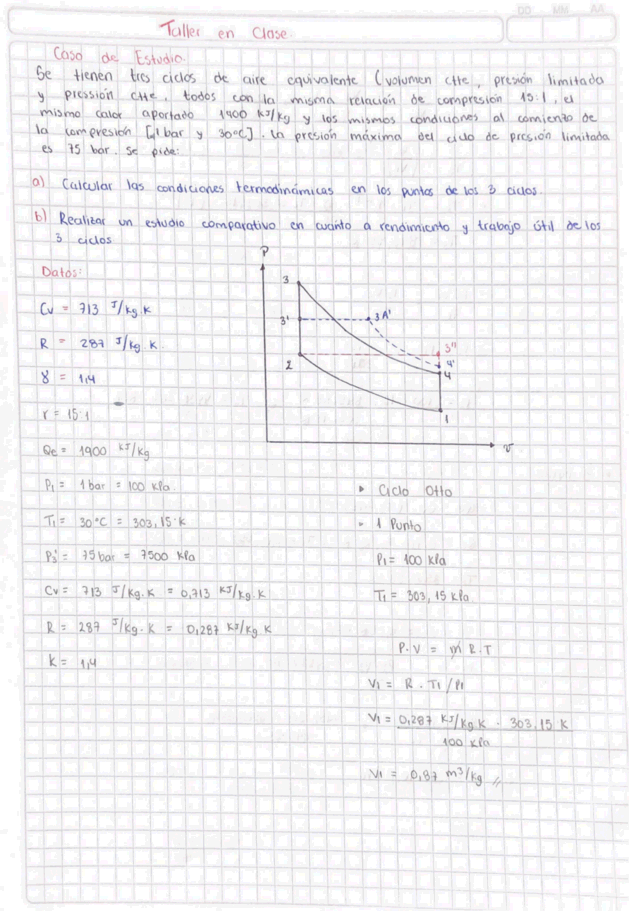 DD MM AA
Taller en Clase.
Caso de Estudio.
Se tienen tres ciclos de aire equivalente (volumen ctte, presión limitada
y pressión ctte, todos con la misma relación de compresión 15:1, el
mismo calor aportado 1900 kJ/kg y los mismos condiciones al comienzo de
la compresión [1 bar y 30°C]. La presión máxima del ciclo de presión limitada
es 75 bar. Se pide:
a) Calcular las condiciones termodinámicas en los puntos de los 3 ciclos.
b) Realizar un estudio comparativo en cuanto a rendimiento y trabajo útil de los
3 ciclos
Datos:
Cv = 713 J/kg.K
R = 287 J/kg.K.
γ = 1,4
r = 15:1
Qc = 1900 kJ/kg
P1 = 1 bar = 100 kPa.
T1 = 30°C = 303,15°K
P3' = 75 bar = 7500 kPa
Cv = 713 J/kg.K = 0,713 kJ/kg.K
R = 287 J/kg.K = 0,287 kJ/kg K
k = 1,4
P
3
3'
3A'
2
3''
4'
4
1
v
▸ Ciclo Otto
• 1 Punto
P1 = 100 kPa
T1 = 303,15 kPa
P.V = m R.T
V1 = R . T1 / P1
V1 = 0,287 kJ/kg K . 303,15 K
100 kPa
V1 = 0,87 m³/kg //